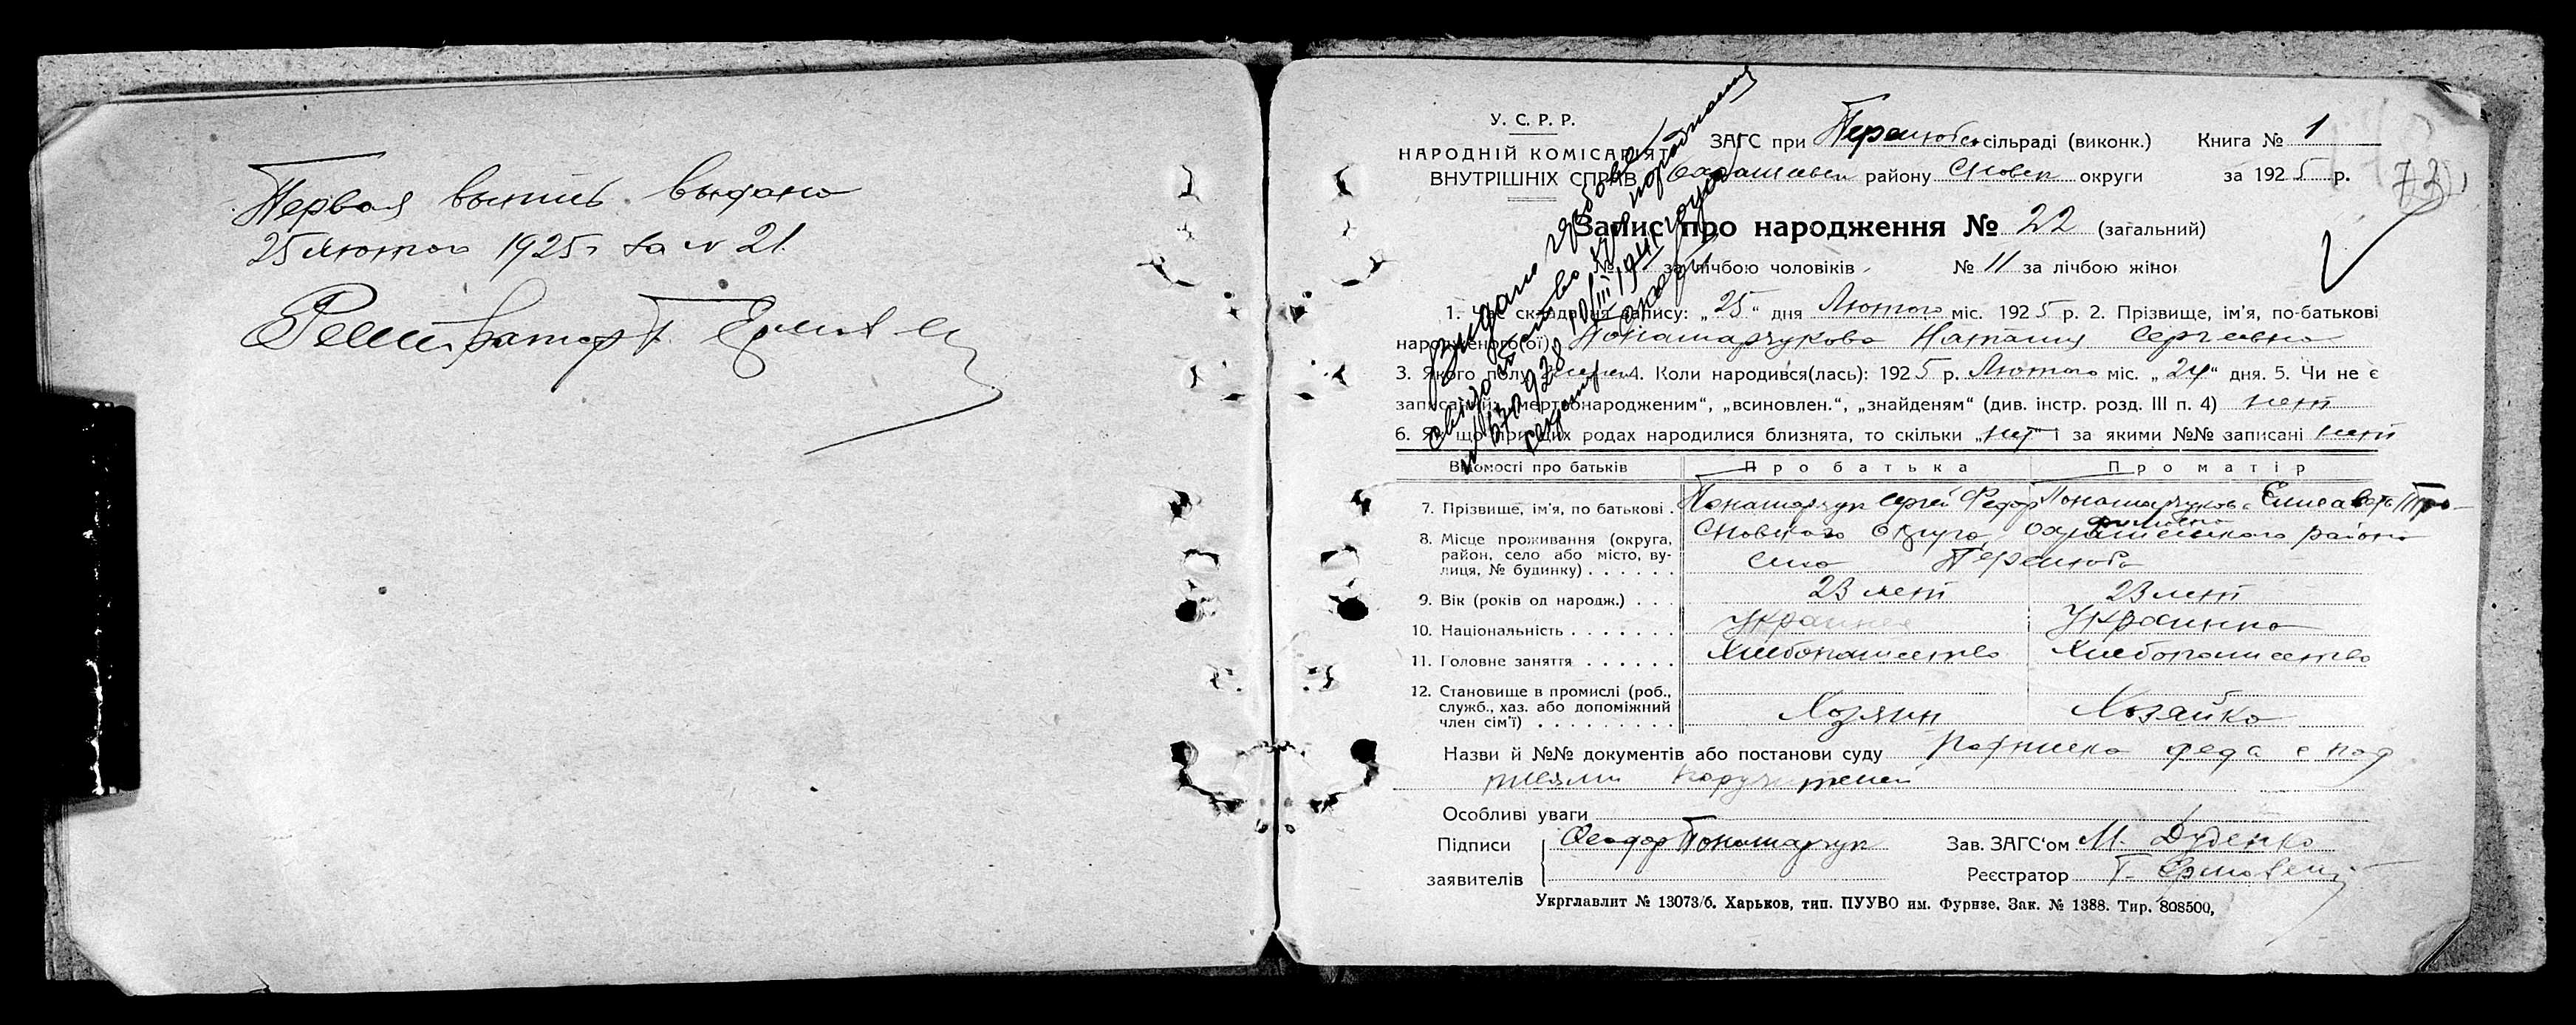 Первая выпись выдана
25 лютого 1925 г за № 21
Регистратор Г.
У. С. Р. Р.
НАРОДНІЙ КОМІСАРІЯТ
ВНУТРІШНІХ СПРАВ
ЗАГС при Перелюбск сільраді (виконк.) Книга № 1
району Сновск округи за 1925 р.
73
Запис про народження № 22 (загальний)
№ за лічбою чоловіків № 11 за лічбою жінок
1. Час складання запису: „25“ дня Лютого міс. 1925 р. 2. Прізвище, ім'я, по-батькові
народженого(ої) Понамарчукова Наталия Сергеевна
3. Якого полу 4. Коли народився(лась): 1925 р. Лютого міс. „24“ дня. 5. Чи не є
записаний: „мертвонародженим“, „всиновлен.“, „знайденям“ (див. інстр. розд. III п. 4) нет
6. Як що при цих родах народилися близнята, то скільки „нет“ і за якими №№ записані нет
Видано
свідоцтво про
№ 928 10/III 1941
Відомості про батьків Про батька Про матір
7. Прізвище, ім'я, по батькові . Понамарчук Сергей Федор Понамарчукова Елисавета Тро-
фимовна
8. Місце проживання (округа, Сновского Округа, района
район, село або місто, ву-
лиця, № будинку) . . . . . . село Перелюб
9. Вік (років од народж.) . . . 23 лет 23 лет
10. Національність . . . . . . . Украинец Украинка
11. Головне заняття . . . . . . Хлебопашество Хлебопашество
12. Становище в промислі (роб.,
служб., хаз. або допоміжний
член сім'ї) . . . . . . . . . Хозяин Хозяйка
Назви й №№ документів або постанови суду Подписка деда с под
писями поручителей
Особливі уваги
Підписи Феодор Понамарчук Зав. ЗАГС'ом М. Дуденко
заявителів Реєстратор Г.
Укрглавлит № 13073/б. Харьков, тип. ПУУВО им. Фрунзе, Зак. № 1388. Тир. 808500,